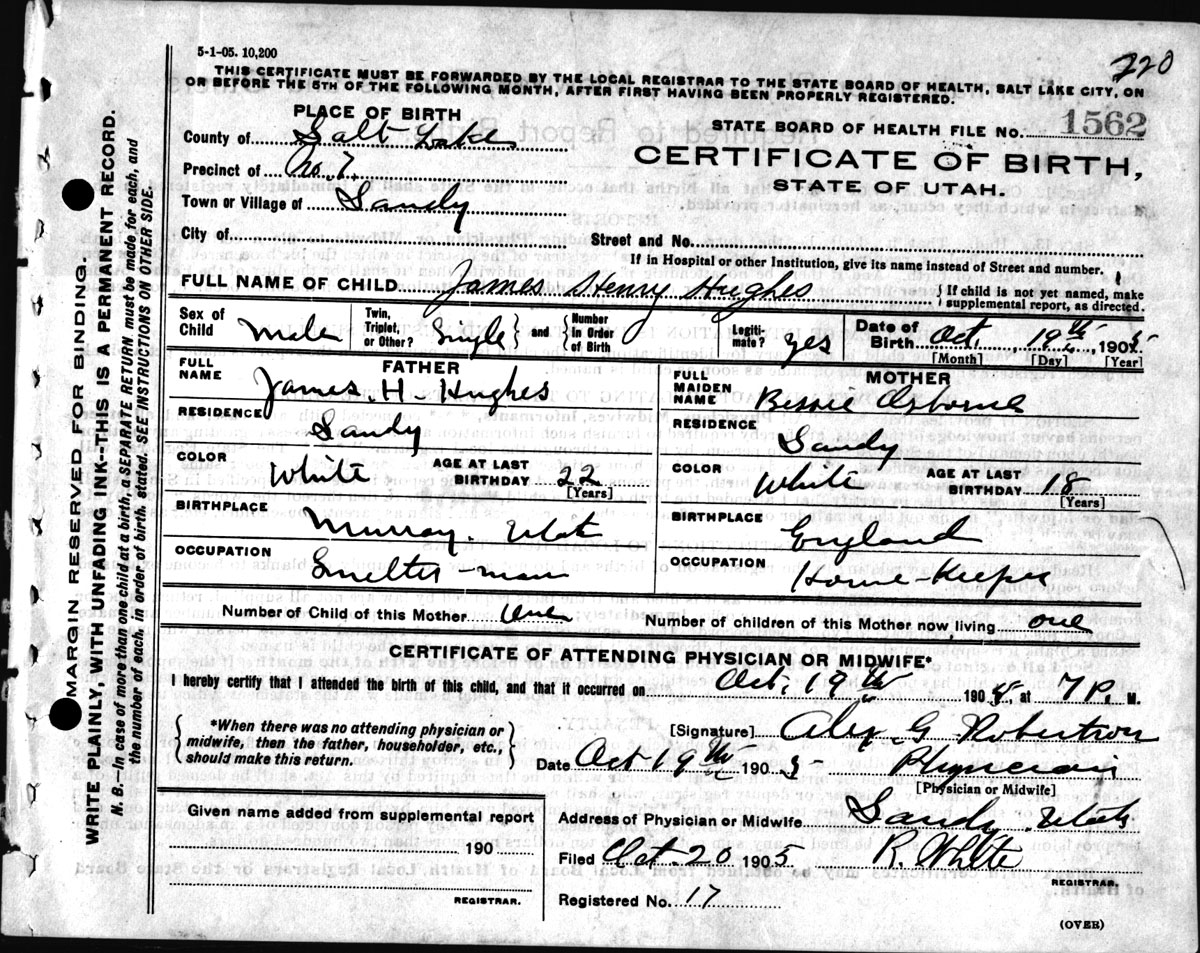 5-1-05. 10,200
220
THIS CERTIFICATE MUST BE FORWARDED BY THE LOCAL REGISTRAR TO THE STATE BOARD OF HEALTH, SALT LAKE CITY, ON
OR BEFORE THE 5TH OF THE FOLLOWING MONTH, AFTER FIRST HAVING BEEN PROPERLY REGISTERED.
PLACE OF BIRTH
STATE BOARD OF HEALTH FILE NO. 1562
County of Salt Lake
CERTIFICATE OF BIRTH,
Precinct of No. 7.
STATE OF UTAH.
Town or Village of Sandy
City of
Street and No.
If in Hospital or other Institution, give its name instead of Street and number.
FULL NAME OF CHILD James Henry Hughes { If child is not yet named, make
supplemental report, as directed.
Sex of Child Male
Twin, Triplet, or Other? Single } and { Number In Order of Birth
Legitimate? yes
Date of Birth Oct. 19th, 1905
[Month] [Day] [Year]
FATHER
FULL NAME James. H. Hughes
RESIDENCE Sandy
COLOR White AGE AT LAST BIRTHDAY 22
[Years]
BIRTHPLACE Murray. Utah
OCCUPATION Smelter-man
MOTHER
FULL MAIDEN NAME Bessie Osborne
RESIDENCE Sandy
COLOR White AGE AT LAST BIRTHDAY 18
[Years]
BIRTHPLACE England
OCCUPATION Home-Keeper
Number of Child of this Mother One
Number of children of this Mother now living one
CERTIFICATE OF ATTENDING PHYSICIAN OR MIDWIFE*
I hereby certify that I attended the birth of this child, and that it occurred on Oct. 19th 1905, at 7 P. M.
{ *When there was no attending physician or
midwife, then the father, householder, etc.,
should make this return. }
[Signature] Alex G Robertson
Date Oct 19th 1905 Physician
[Physician or Midwife]
Given name added from supplemental report
190
REGISTRAR.
Address of Physician or Midwife Sandy Utah
Filed Oct. 20 1905 R. White
REGISTRAR.
Registered No. 17
(OVER)
MARGIN RESERVED FOR BINDING
WRITE PLAINLY, WITH UNFADING INK--THIS IS A PERMANENT RECORD.
N. B.--In case of more than one child at a birth, a SEPARATE RETURN must be made for each, and
the number of each, in order of birth, stated. SEE INSTRUCTIONS ON OTHER SIDE.